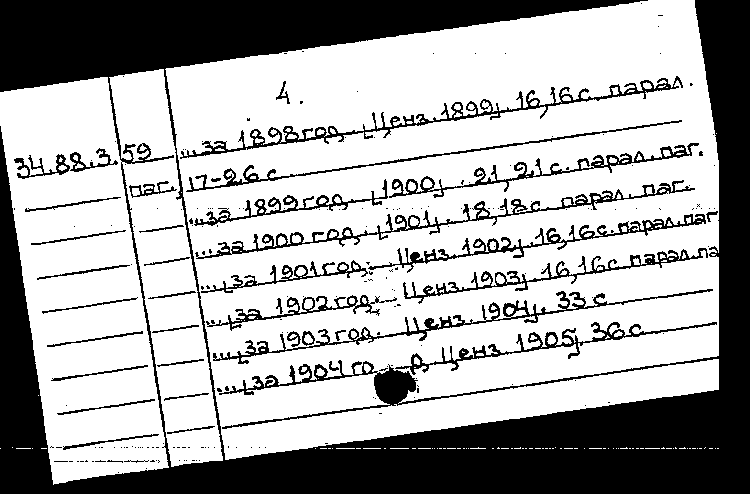 4.
34.88.3.59 ...за 1898 год. [Ценз. 1899]. 16,16 с. парал.
паг., 17-26 с
...за 1899 год. [1900]. 21, 21 с. парал. паг.
...за 1900 год. [1901]. 18,18 с. парал. паг.
...[за 1901 год. Ценз. 1902]. 16,16 с. парал. паг
...[за 1902 год. Ценз. 1903]. 16,16 с парал. па
...[за 1903 год. Ценз. 1904]. 33 с
...[за 1904 го д. Ценз. 1905]. 36 с